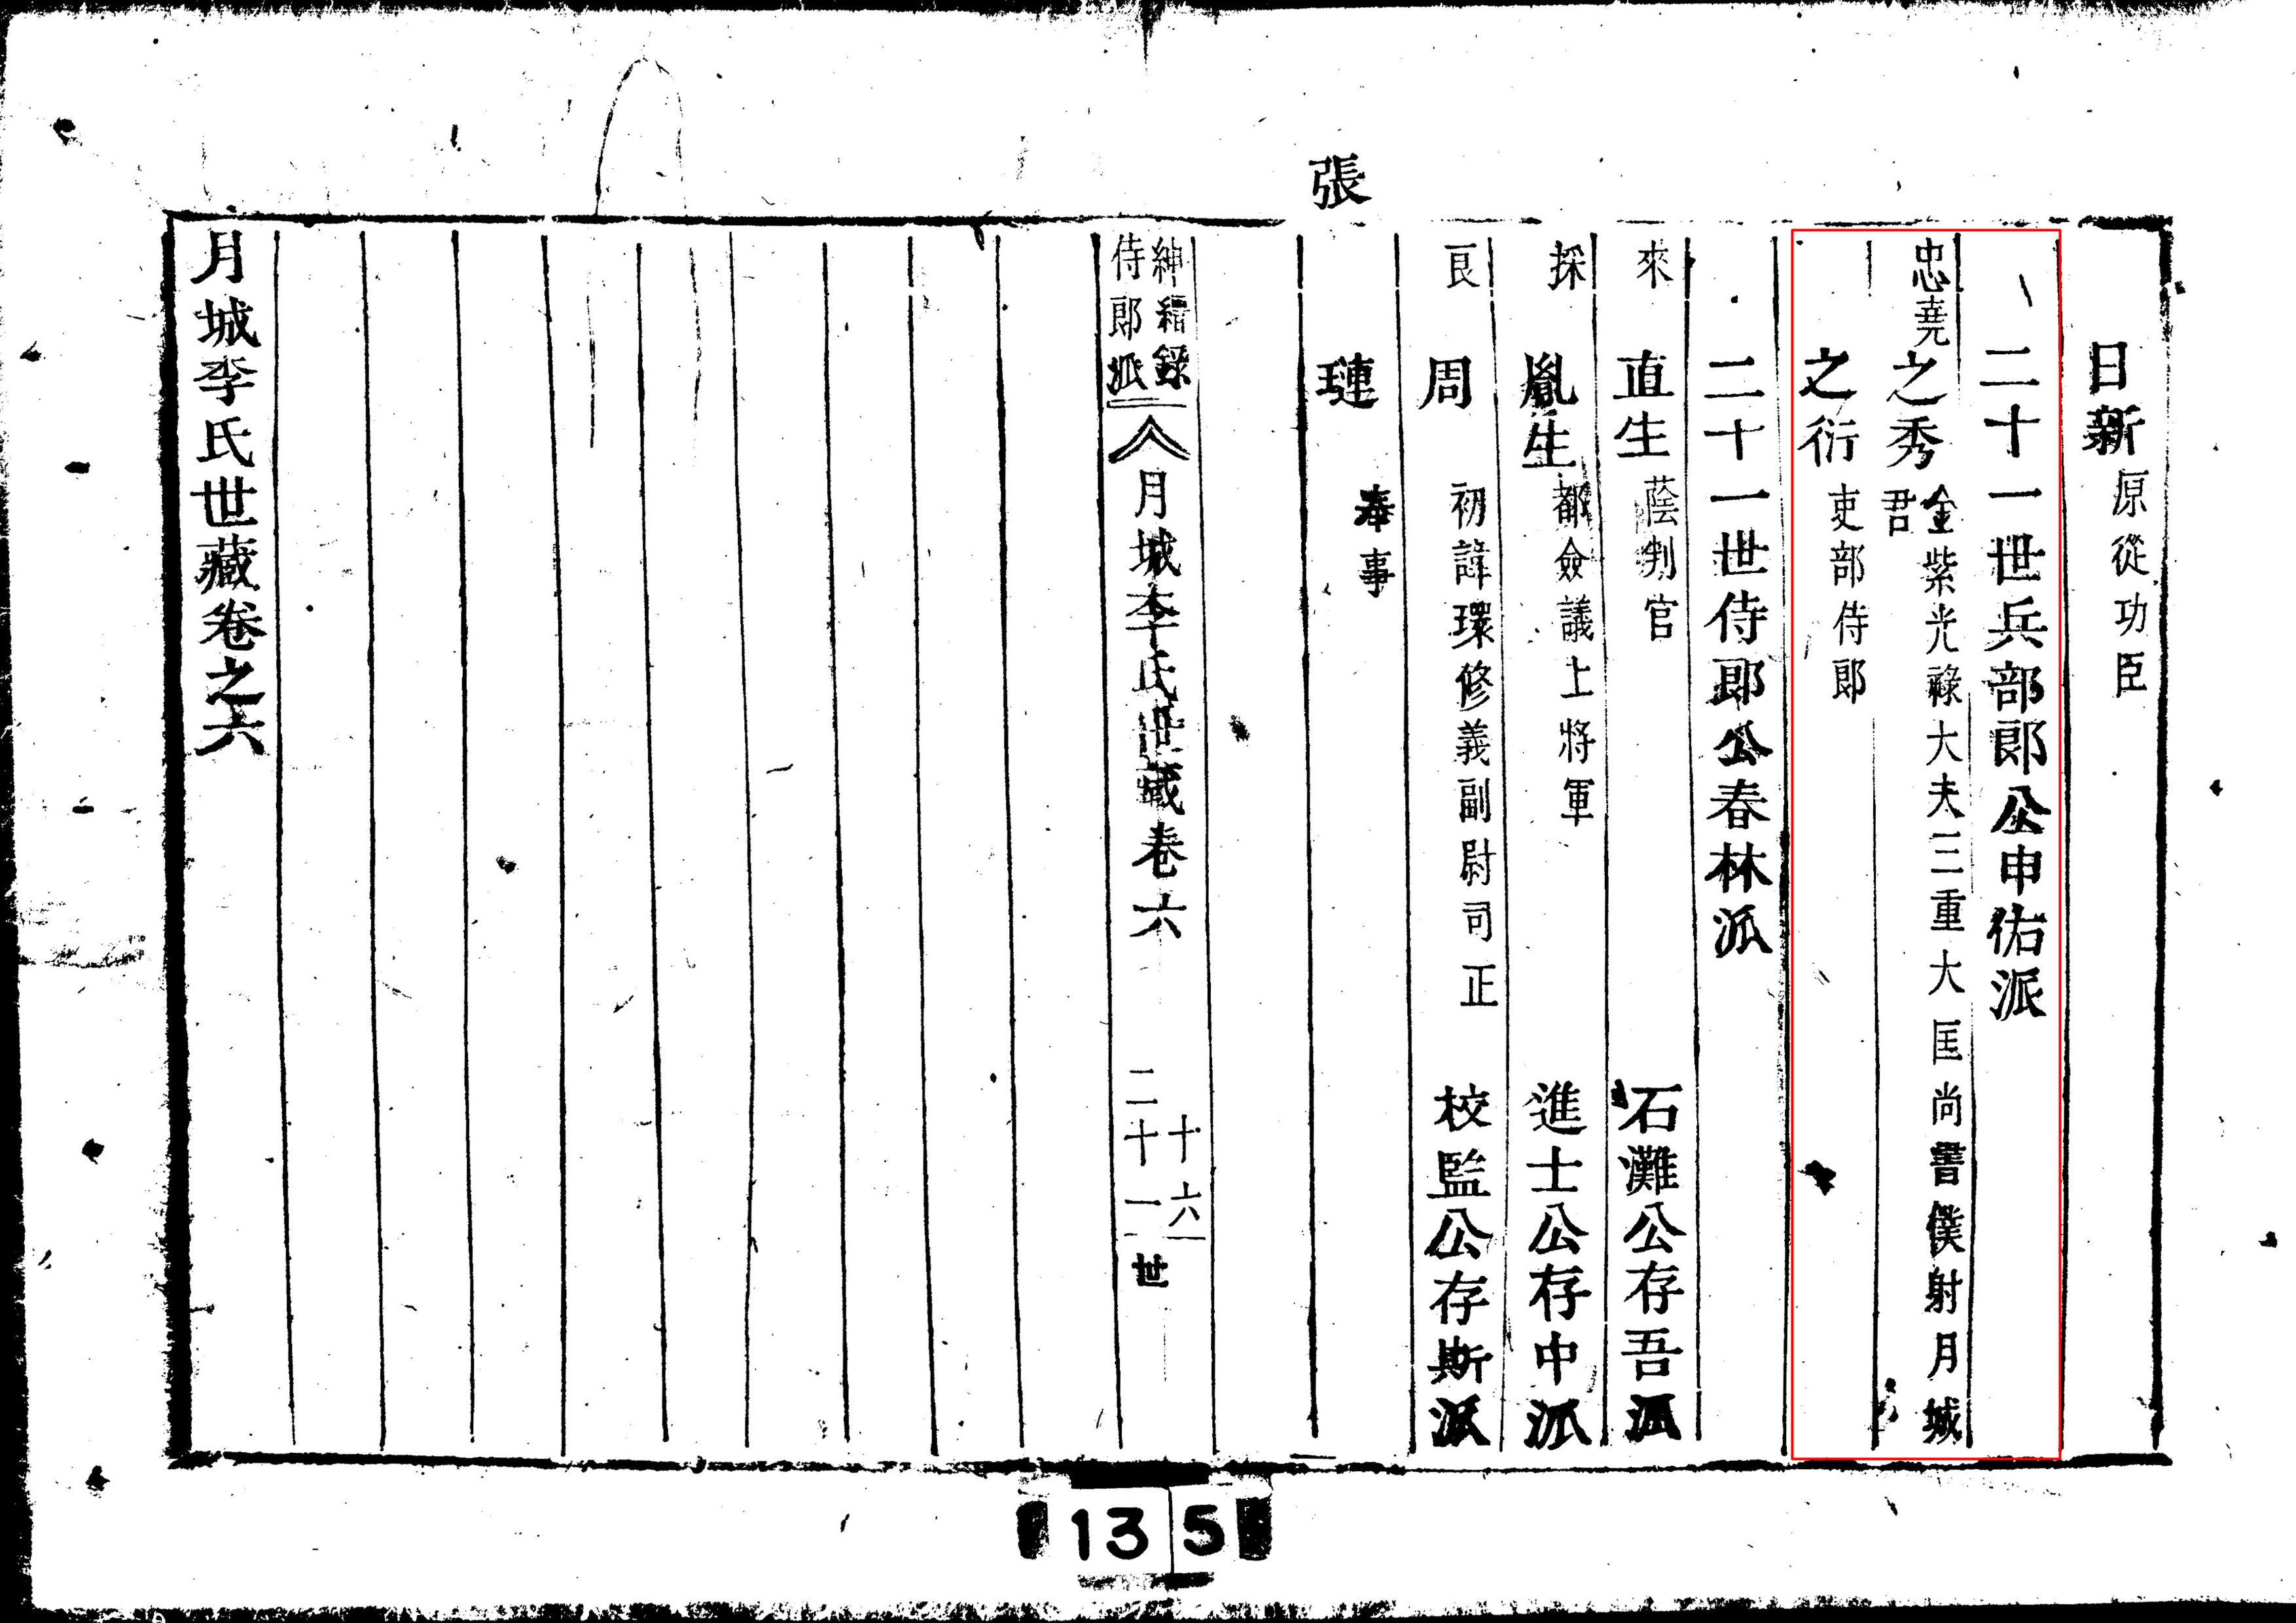 日新 原從功臣
二十一世兵部郎公申佑派
忠堯 之秀 金紫光祿大夫三重大匡尚書僕射月城君
之衍 吏部侍郎
二十一世侍郎公春林派
來 直生 蔭判官 石灘公存吾派
採 胤生 都僉議上將軍 進士公存中派
良 周 初諱環修義副尉司正 校監公存斯派
張 璉 奉事
紳縉錄 侍郎派 月城李氏世藏卷六 十六 二十一世
月城李氏世藏卷之六
135